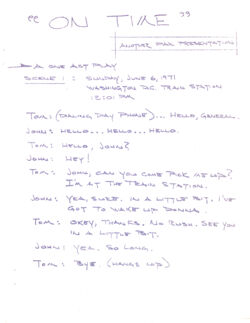 "ON TIME"
ANOTHER PRESENTATION
A ONE ACT PLAY
SCENE 1: SUNDAY, JUNE 6, 1971
WASHINGTON D.C. TRAIN STATION
12:01 PM
TOM: (TALKING PHONE)... HELLO, GENERAL.
JOHN: HELLO... HELLO... HELLO.
TOM: HELLO, JOHN?
JOHN: HEY!
TOM: JOHN, CAN YOU COME PICK ME UP?
I'M AT THE TRAIN STATION.
JOHN: YEA, SURE. IN A LITTLE BIT. I'VE
GOT TO WAKE UP DONNA.
TOM: OKEY, THANKS. NO RUSH. SEE YOU
IN A LITTLE BIT.
JOHN: YEA. SO LONG.
TOM: BYE. (HANGS UP)